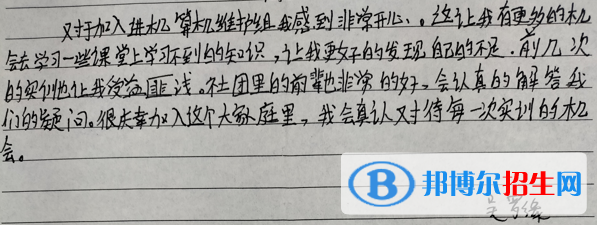 对于加入进机算机维护组我感到非常开心。这让我有更多的机
会去学习一些课堂上学习不到的知识，让我更好的发现自己的不足.前几次
的实训也让我受益匪浅。社团里的前辈也非常的好，会认真的解答我
们的疑问。很庆幸加入这个大家庭里，我会真认对待每一次实训的机
会。
邦博尔招生网